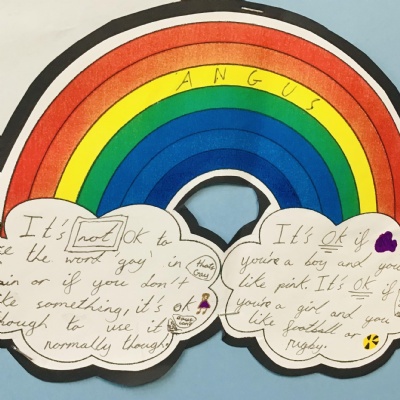 ANGUS
It's not OK to
the word 'gay' in
or if you don't
something, it's OK
though to use it
normally though.
It's OK if
you're a boy and you
like pink. It's OK if
you're a girl and you
like football or
rugby.